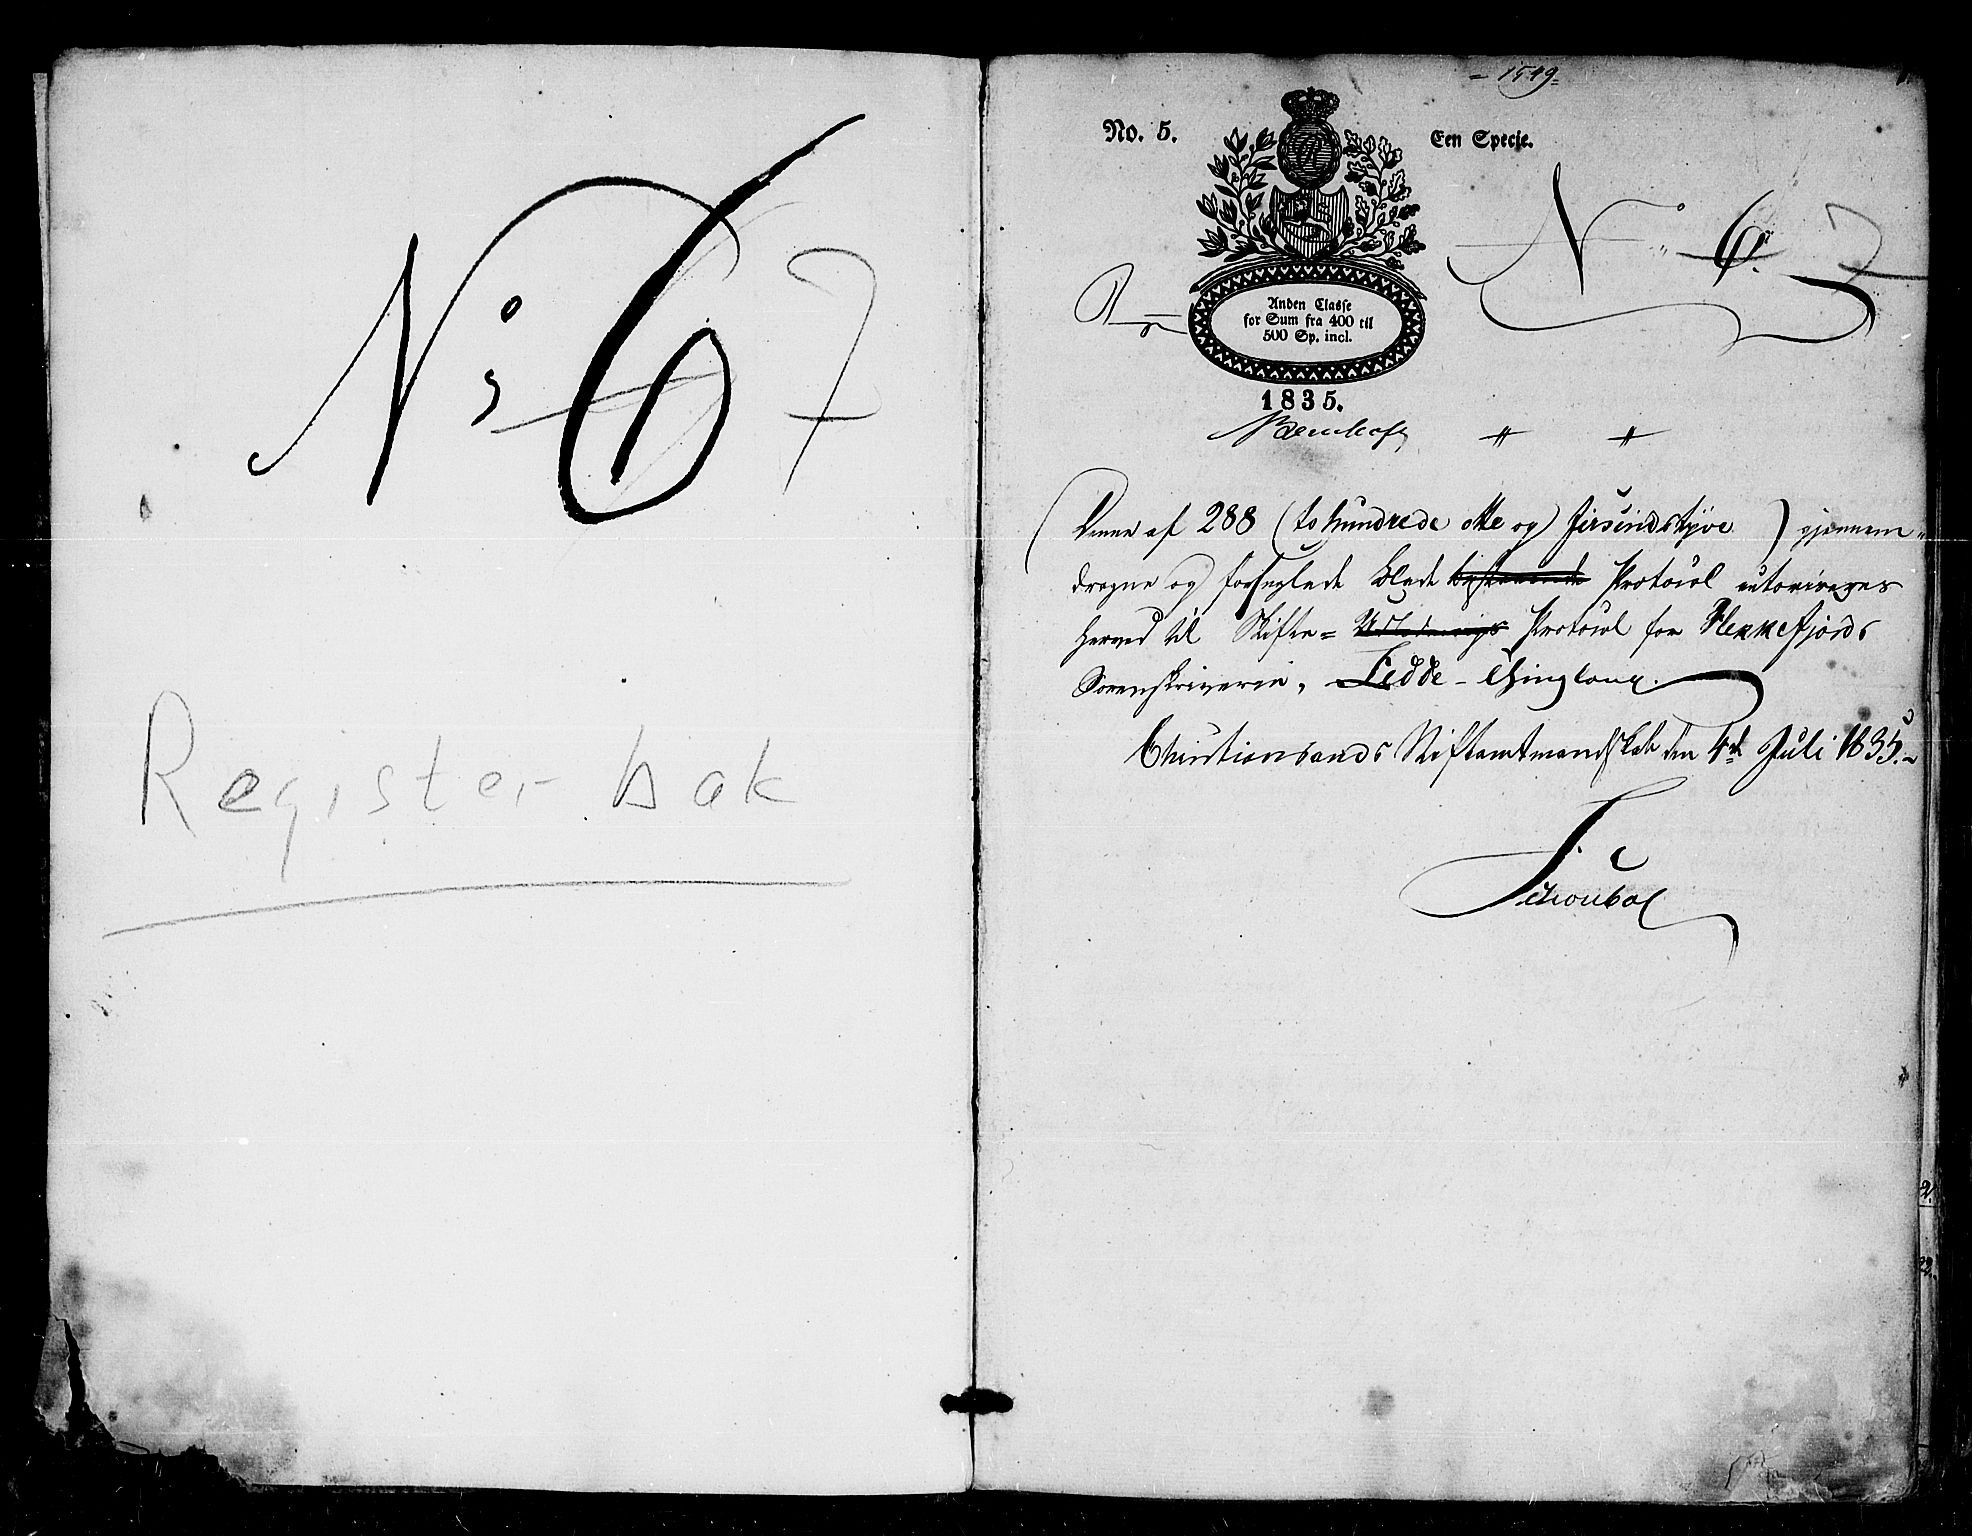 No 6 7
Register bak
= 1549 =
No. 5.
Een Specie.
No 6. 7
Anden Classe
for Sum fra 400 til
500 Sp. incl.
1835.
Denne af 288 (to hundrede otte og firsindstyve) gjennem-
dragne og forseglede Blade bestaaende Protocol autoriseres
herved til Skifte= Udlodnings Protocol for Flekkefjords
Sorenskriverie, Fedde Thinglaug.
Christiansands Stiftamtmandskab den 4de Juli 1835.
Schouboe
2.